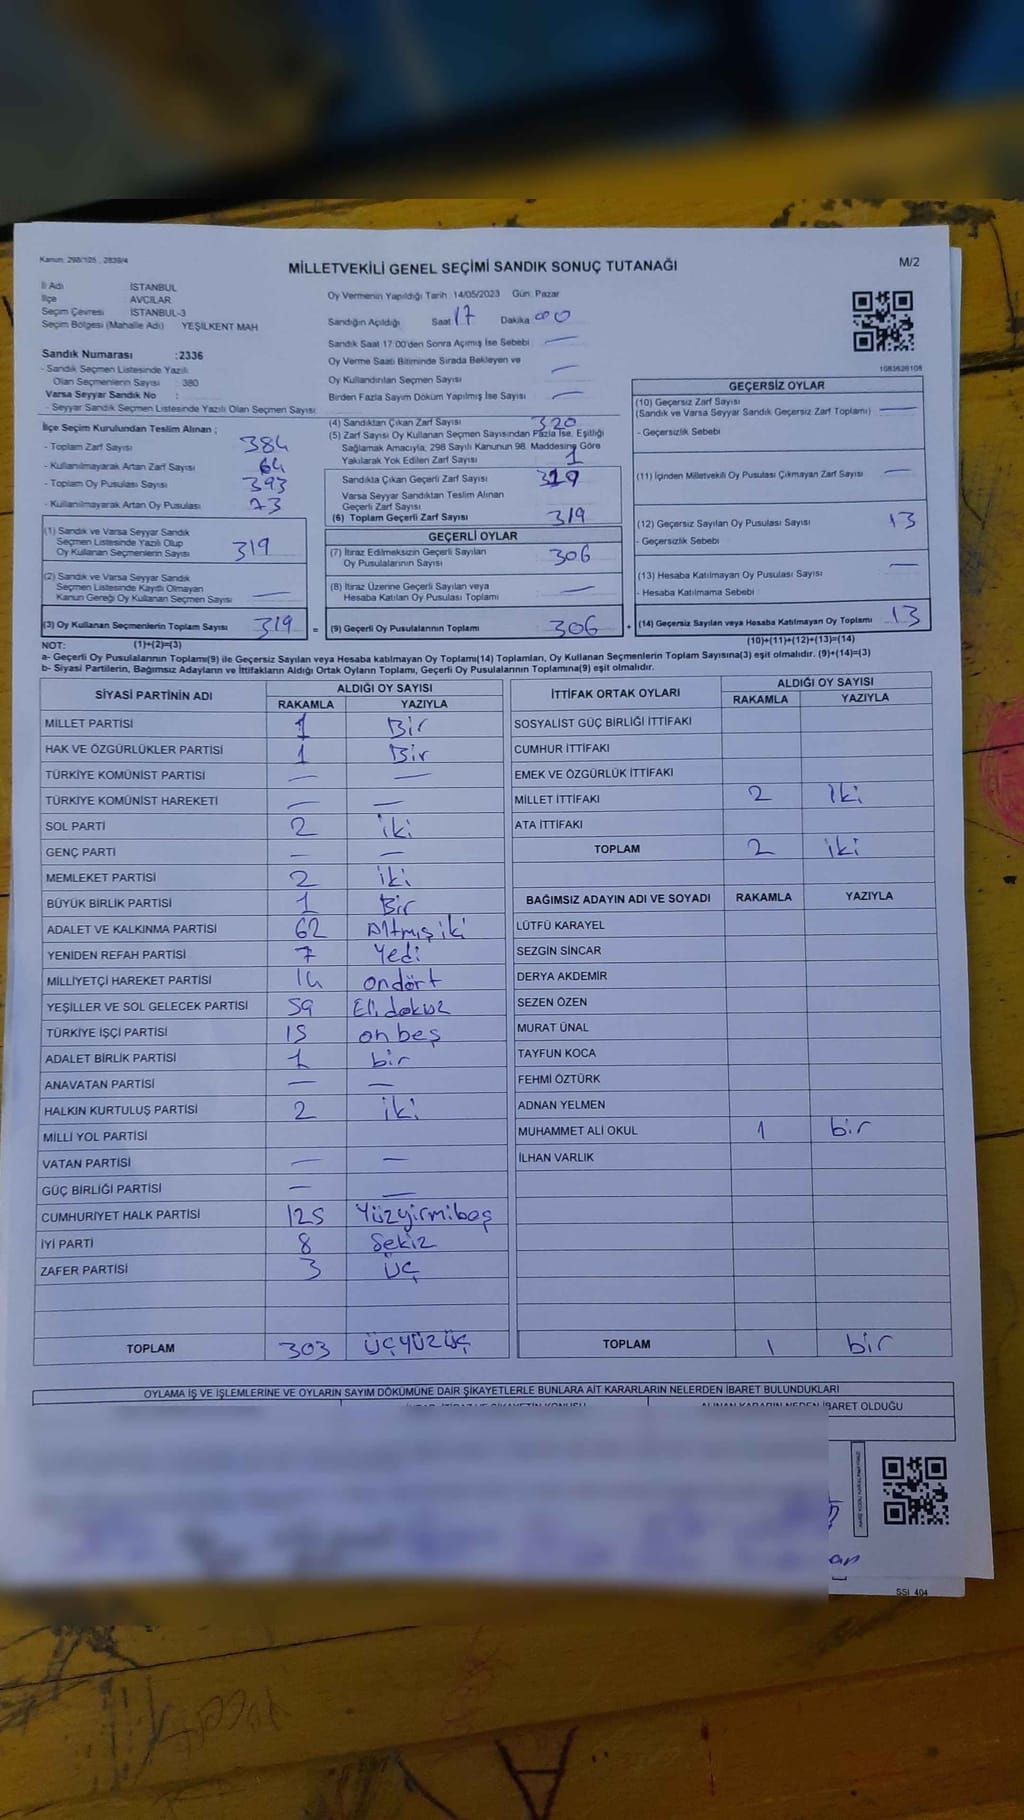 Kanun: 298/105 , 2839/4
MİLLETVEKİLİ GENEL SEÇİMİ SANDIK SONUÇ TUTANAĞI
M/2
İl Adı İSTANBUL
İlçe AVCILAR
Seçim Çevresi İSTANBUL-3
Seçim Bölgesi (Mahalle Adı) YEŞİLKENT MAH
Sandık Numarası :2336
- Sandık Seçmen Listesinde Yazılı
Olan Seçmenlerin Sayısı : 380
Varsa Seyyar Sandık No :
- Seyyar Sandık Seçmen Listesinde Yazılı Olan Seçmen Sayısı:
Oy Vermenin Yapıldığı Tarih :14/05/2023 Gün: Pazar
Sandığın Açıldığı Saat 17 Dakika 00
Sandık Saat 17:00'den Sonra Açımış İse Sebebi —
Oy Verme Saati Bitiminde Sırada Bekleyen ve
Oy Kullandırılan Seçmen Sayısı —
Birden Fazla Sayım Döküm Yapılmış İse Sayısı —
1083626106
İlçe Seçim Kurulundan Teslim Alınan ;
- Toplam Zarf Sayısı 384
- Kullanılmayarak Artan Zarf Sayısı 64
- Toplam Oy Pusulası Sayısı 393
- Kullanılmayarak Artan Oy Pusulası 73
(1) Sandık ve Varsa Seyyar Sandık
Seçmen Listesinde Yazılı Olup
Oy Kullanan Seçmenlerin Sayısı 319
(2) Sandık ve Varsa Seyyar Sandık
Seçmen Listesinde Kayıtlı Olmayan
Kanun Gereği Oy Kullanan Seçmen Sayısı —
(3) Oy Kullanan Seçmenlerin Toplam Sayısı 319 =
(4) Sandıktan Çıkan Zarf Sayısı 320
(5) Zarf Sayısı Oy Kullanan Seçmen Sayısından Fazla İse, Eşitliği
Sağlamak Amacıyla, 298 Sayılı Kanunun 98. Maddesine Göre
Yakılarak Yok Edilen Zarf Sayısı 1
Sandıkta Çıkan Geçerli Zarf Sayısı 319
Varsa Seyyar Sandıktan Teslim Alınan
Geçerli Zarf Sayısı
(6) Toplam Geçerli Zarf Sayısı 319
GEÇERLİ OYLAR
(7) İtiraz Edilmeksizin Geçerli Sayılan
Oy Pusulalarının Sayısı 306
(8) İtiraz Üzerine Geçerli Sayılan veya
Hesaba Katılan Oy Pusulası Toplamı —
(9) Geçerli Oy Pusulalarının Toplamı 306 +
GEÇERSİZ OYLAR
(10) Geçersiz Zarf Sayısı
(Sandık ve Varsa Seyyar Sandık Geçersiz Zarf Toplamı) —
- Geçersizlik Sebebi
(11) İçinden Milletvekili Oy Pusulası Çıkmayan Zarf Sayısı —
(12) Geçersiz Sayılan Oy Pusulası Sayısı 13
- Geçersizlik Sebebi
(13) Hesaba Katılmayan Oy Pusulası Sayısı —
- Hesaba Katılmama Sebebi
(14) Geçersiz Sayılan veya Hesaba Katılmayan Oy Toplamı 13
NOT: (1)+(2)=(3) (10)+(11)+(12)+(13)=(14)
a- Geçerli Oy Pusulalarının Toplamı(9) ile Geçersiz Sayılan veya Hesaba katılmayan Oy Toplamı(14) Toplamları, Oy Kullanan Seçmenlerin Toplam Sayısına(3) eşit olmalıdır. (9)+(14)=(3)
b- Siyasi Partilerin, Bağımsız Adayların ve İttifakların Aldığı Ortak Oyların Toplamı, Geçerli Oy Pusulalarının Toplamına(9) eşit olmalıdır.
SİYASİ PARTİNİN ADI ALDIĞI OY SAYISI
RAKAMLA YAZIYLA
MİLLET PARTİSİ 1 Bir
HAK VE ÖZGÜRLÜKLER PARTİSİ 1 Bir
TÜRKİYE KOMÜNİST PARTİSİ — —
TÜRKİYE KOMÜNİST HAREKETİ — —
SOL PARTİ 2 iki
GENÇ PARTİ — —
MEMLEKET PARTİSİ 2 iki
BÜYÜK BİRLİK PARTİSİ 1 Bir
ADALET VE KALKINMA PARTİSİ 62 Altmış iki
YENİDEN REFAH PARTİSİ 7 Yedi
MİLLİYETÇİ HAREKET PARTİSİ 14 ondört
YEŞİLLER VE SOL GELECEK PARTİSİ 59 Eli dokuz
TÜRKİYE İŞÇİ PARTİSİ 15 on beş
ADALET BİRLİK PARTİSİ 1 bir
ANAVATAN PARTİSİ — —
HALKIN KURTULUŞ PARTİSİ 2 iki
MİLLİ YOL PARTİSİ
VATAN PARTİSİ — —
GÜÇ BİRLİĞİ PARTİSİ — —
CUMHURİYET HALK PARTİSİ 125 Yüzyirmibeş
İYİ PARTİ 8 Sekiz
ZAFER PARTİSİ 3 üç
TOPLAM 303 üçyüzüç
İTTİFAK ORTAK OYLARI ALDIĞI OY SAYISI
RAKAMLA YAZIYLA
SOSYALİST GÜÇ BİRLİĞİ İTTİFAKI
CUMHUR İTTİFAKI
EMEK VE ÖZGÜRLÜK İTTİFAKI
MİLLET İTTİFAKI 2 iki
ATA İTTİFAKI
TOPLAM 2 iki
BAĞIMSIZ ADAYIN ADI VE SOYADI RAKAMLA YAZIYLA
LÜTFÜ KARAYEL
SEZGİN SİNCAR
DERYA AKDEMİR
SEZEN ÖZEN
MURAT ÜNAL
TAYFUN KOCA
FEHMİ ÖZTÜRK
ADNAN YELMEN
MUHAMMET ALİ OKUL 1 bir
İLHAN VARLIK
TOPLAM 1 bir
OYLAMA İŞ VE İŞLEMLERİNE VE OYLARIN SAYIM DÖKÜMÜNE DAİR ŞİKAYETLERLE BUNLARA AİT KARARLARIN NELERDEN İBARET BULUNDUKLARI
ALINAN KARARIN NEDEN İBARET OLDUĞU
SSİ_404